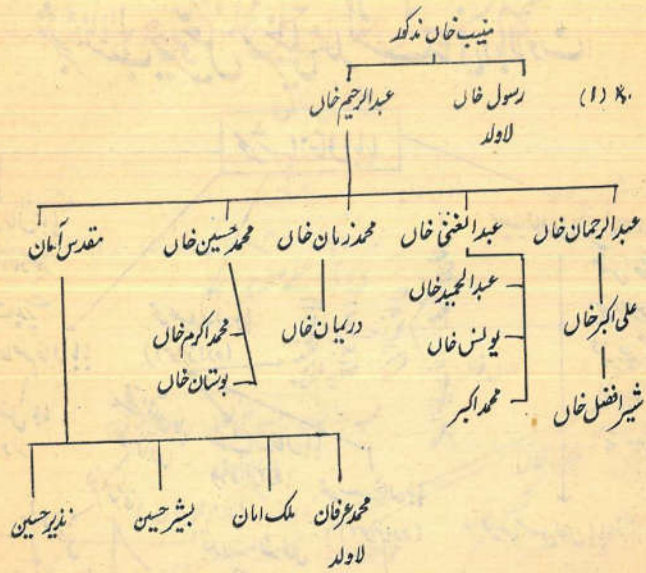 منیب خاں مذکور
(1)
رسول خاں
لاولد
عبدالرحیم خاں
عبدالرحمان خاں
عبدالغنی خاں
محمد زمان خاں
محمد حسین خاں
مقدس آمان
علی اکبر خاں
شیر افضل خاں
عبدالحمید خاں
یونس خاں
محمد اکبر
دریمان خاں
محمد اکرم خاں
بوستان خاں
محمد عرفان
لاولد
ملک امان
بشیر حسین
نذیر حسین